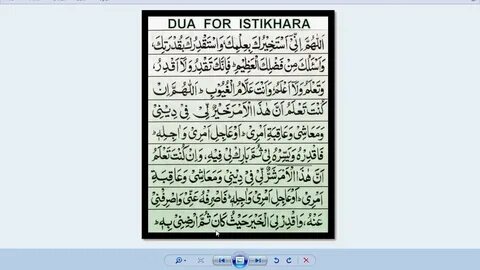 DUA FOR ISTIKHARA
اَللّٰهُمَّ اِنِّىْ اَسْتَخِيْرُكَ بِعِلْمِكَ وَاَسْتَقْدِرُكَ بِقُدْرَتِكَ
وَاَسْئَلُكَ مِنْ فَضْلِكَ الْعَظِيْمِ فَاِنَّكَ تَقْدِرُ وَلَآ اَقْدِرُ
وَتَعْلَمُ وَلَآ اَعْلَمُ وَاَنْتَ عَلَّامُ الْغُيُوْبِ اَللّٰهُمَّ اِنْ
كُنْتَ تَعْلَمُ اَنَّ هٰذَا الْاَمْرَ خَيْرٌ لِّىْ فِىْ دِيْنِىْ
وَمَعَاشِىْ وَعَاقِبَةِ اَمْرِىْ اَوْ عَاجِلِ اَمْرِىْ وَاٰجِلِهٖ
فَاقْدِرْهُ وَيَسِّرْهُ لِىْ ثُمَّ بَارِكْ لِىْ فِيْهِ، وَاِنْ كُنْتَ تَعْلَمُ
اَنَّ هٰذَا الْاَمْرَ شَرٌّ لِّىْ فِىْ دِيْنِىْ وَمَعَاشِىْ وَعَاقِبَةِ
اَمْرِىْ اَوْ عَاجِلِ اَمْرِىْ وَاٰجِلِهٖ فَاصْرِفْهُ عَنِّىْ وَاصْرِفْنِىْ
عَنْهُ، وَاقْدِرْ لِىَ الْخَيْرَ حَيْثُ كَانَ ثُمَّ ارْضِنِىْ بِهٖ